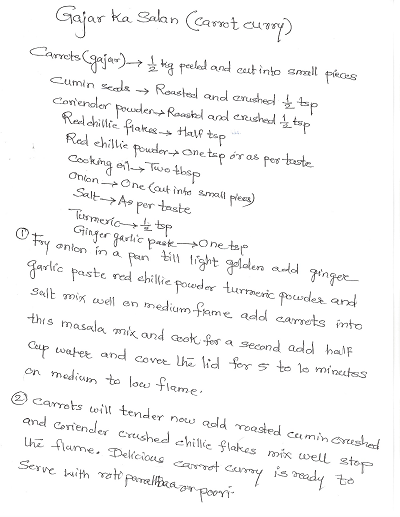 Gajar Ka Salan (carrot curry)
Carrots (gajar) → 1/2 kg peeled and cut into small pieces
Cumin seeds → Roasted and crushed 1/2 tsp
Coriender powder → Roasted and crushed 1/2 tsp
Red chillie flakes → Half tsp
Red chillie powder → One tsp or as per taste
Cooking oil → Two tbsp
Onion → One (cut into small pieces)
Salt → As per taste
Turmeric → 1/2 tsp
Ginger garlic paste → One tsp
① Fry onion in a pan till light golden add ginger
garlic paste red chillie powder turmeric powder and
salt mix well on medium flame add carrots into
this masala mix and cook for a second add half
cup water and cover the lid for 5 to 10 minutes
on medium to low flame.
② Carrots will tender now add roasted cumin crushed
and coriender crushed chillie flakes mix well stop
the flame. Delicious carrot curry is ready to
serve with roti or poori.